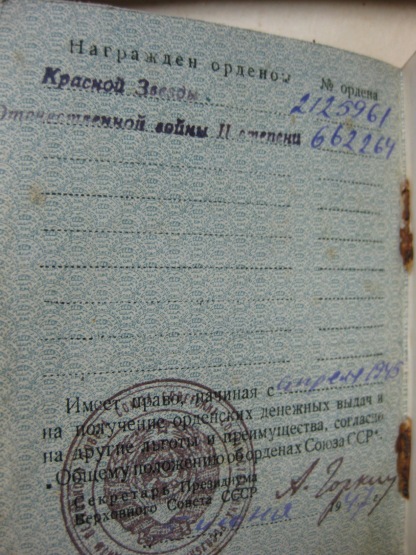 Награжден орденом
№ ордена
Красной Звезды. 2125961
Отечественной войны II степени 662264
Имеет право, начиная с апреля 1945
на получение орденских денежных выдач и
на другие льготы и преимущества, согласно
„Общему положению об орденах Союза ССР“.
Секретарь Президиума
Верховного Совета СССР
А. Горкин
июня 1947 г.